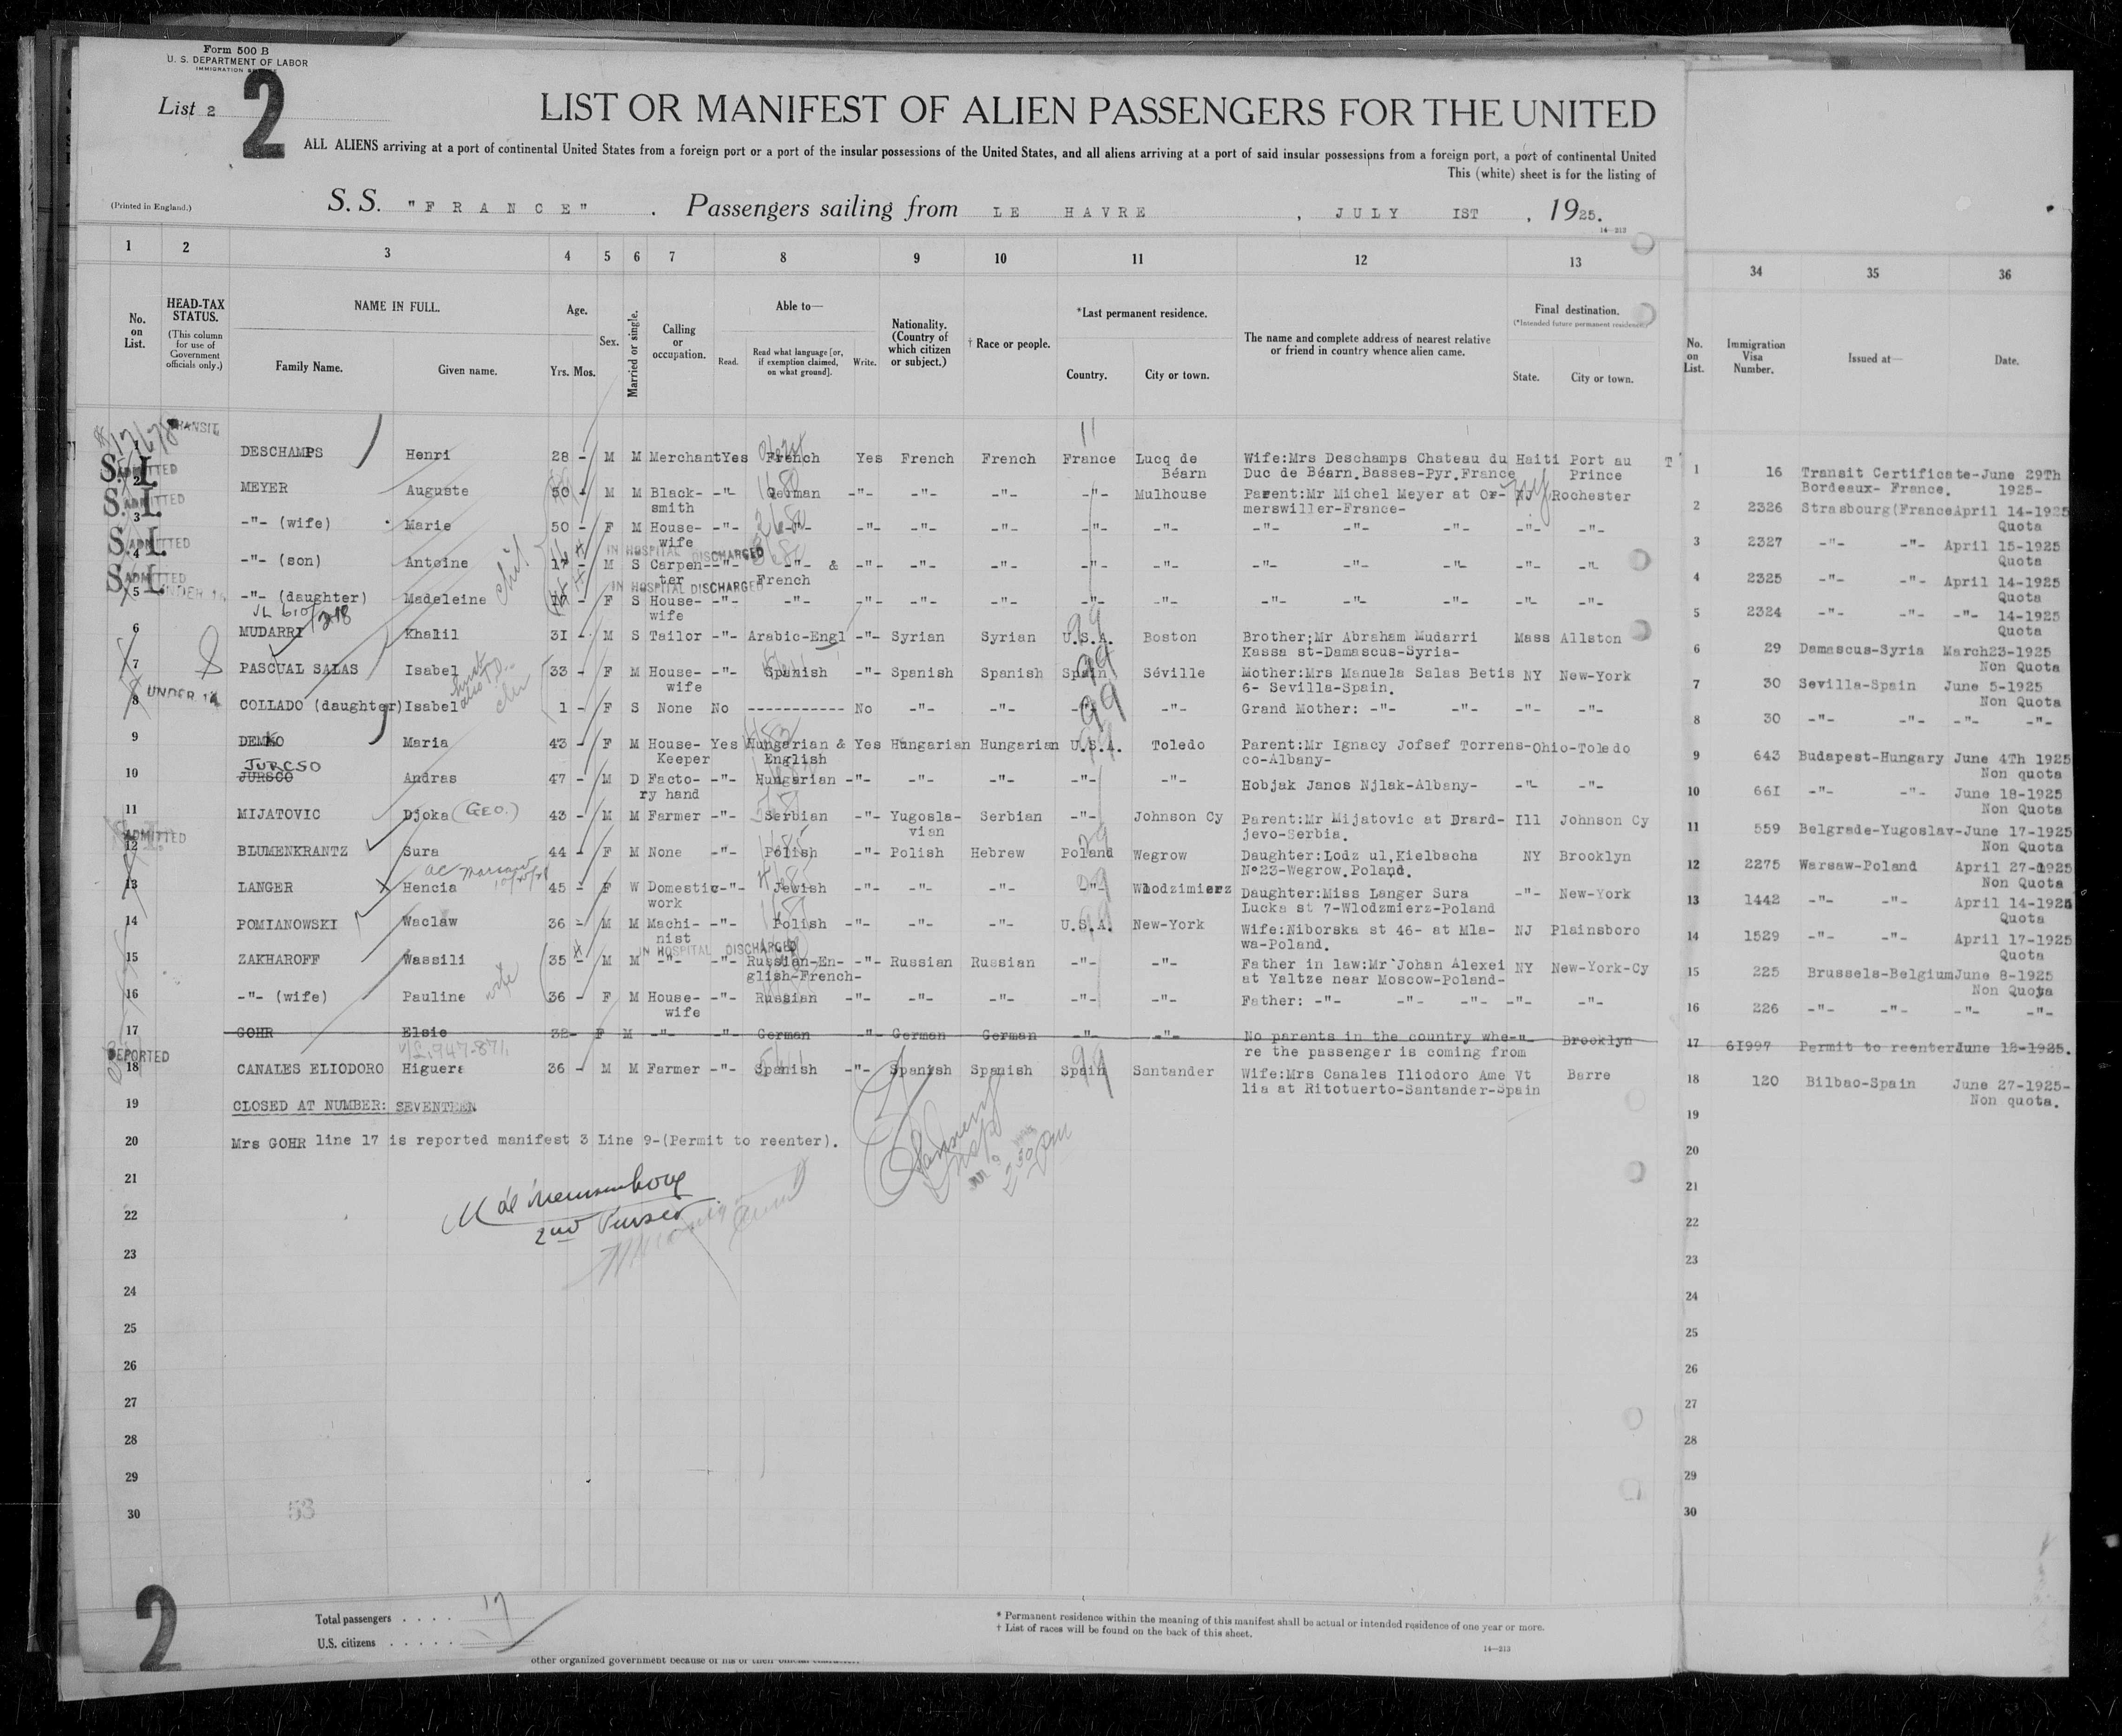 Form 500 B
U. S. DEPARTMENT OF LABOR
IMMIGRATION
List 2
2
LIST OR MANIFEST OF ALIEN PASSENGERS FOR THE UNITED
ALL ALIENS arriving at a port of continental United States from a foreign port or a port of the insular possessions of the United States, and all aliens arriving at a port of said insular possessions from a foreign port, a port of continental United
This (white) sheet is for the listing of
(Printed in England.)
S. S. "FRANCE" . Passengers sailing from LE HAVRE , JULY IST , 1925.
14—213
1 2 3 4 5 6 7 8 9 10 11 12 13 34 35 36
No. on List.
HEAD-TAX STATUS. (This column for use of Government officials only.)
NAME IN FULL. Family Name. Given name.
Age. Yrs. Mos.
Sex.
Married or single.
Calling or occupation.
Able to— Read. Read what language [or, if exemption claimed, on what ground]. Write.
Nationality. (Country of which citizen or subject.)
† Race or people.
*Last permanent residence. Country. City or town.
The name and complete address of nearest relative or friend in country whence alien came.
Final destination. (*Intended future permanent residence) State. City or town.
No. on List.
Immigration Visa Number.
Issued at—
Date.
TRANSIT
1 DESCHAMPS Henri 28 - M M Merchant Yes French Yes French French France Lucq de Béarn Wife:Mrs Deschamps Chateau du Duc de Béarn.Basses-Pyr.France Haiti Port au Prince 1 16 Transit Certificate-June 29Th Bordeaux- France. 1925-
S.I. ADMITTED
2 MEYER Auguste 50 - M M Black-smith -"- German -"- -"- -"- -"- Mulhouse Parent:Mr Michel Meyer at Or-merswiller-France- NJ NY Rochester 2 2326 Strasbourg(France April 14-1925 Quota
S.I. ADMITTED
3 -"- (wife) Marie 50 - F M House-wife -"- -"- -"- -"- -"- -"- -"- -"- -"- -"- -"- -"- 3 2327 -"- -"- April 15-1925 Quota
S.I. ADMITTED
IN HOSPITAL DISCHARGED
4 -"- (son) Antoine 17 - M S Carpen-ter -"- -"- & French -"- -"- -"- -"- -"- -"- -"- -"- -"- -"- 4 2325 -"- -"- April 14-1925 Quota
S.I. ADMITTED
IN HOSPITAL DISCHARGED
5 UNDER 16 -"- (daughter) Madeleine - F S House-wife -"- -"- -"- -"- -"- -"- -"- -"- -"- -"- -"- -"- 5 2324 -"- -"- -"- 14-1925 Quota
6 MUDARRI Khalil 3I - M S Tailor -"- Arabic-Engl -"- Syrian Syrian U.S.A. Boston Brother;Mr Abraham Mudarri Kassa st-Damascus-Syria- Mass Allston 6 29 Damascus-Syria March23-1925 Non Quota
7 PASCUAL SALAS Isabel 33 - F M House-wife -"- Spanish -"- Spanish Spanish Spain Séville Mother:Mrs Manuela Salas Betis 6- Sevilla-Spain. NY New-York 7 30 Sevilla-Spain June 5-1925 Non Quota
UNDER 14
8 COLLADO (daughter) Isabel 1 - F S None No ----------- No -"- -"- -"- -"- Grand Mother: -"- -"- -"- -"- 8 30 -"- -"- -"- -"-
9 DEMKO Maria 43 - F M House-Keeper Yes Hungarian & English Yes Hungarian Hungarian U.S.A. Toledo Parent:Mr Ignacy Jofsef Torrens-co-Albany- Ohio-Toledo 9 643 Budapest-Hungary June 4Th 1925 Non quota
JURCSO
10 JURSCO Andras 47 - M D Facto-ry hand -"- Hungarian -"- -"- -"- -"- -"- Hobjak Janos Njlak-Albany- -"- -"- 10 66I -"- -"- June 18-1925 Non Quota
11 MIJATOVIC Djoka (GEO.) 43 - M M Farmer -"- Serbian -"- Yugosla-vian Serbian -"- Johnson Cy Parent:Mr Mijatovic at Drard-jevo-Serbia. Ill Johnson Cy 11 559 Belgrade-Yugoslav-June 17-1925 Non Quota
ADMITTED
12 BLUMENKRANTZ Sura 44 - F M None -"- Polish -"- Polish Hebrew Poland Wegrow Daughter:Lodz ul,Kielbacha N°23-Wegrow.Poland. NY Brooklyn 12 2275 Warsaw-Poland April 27-1925 Non Quota
13 LANGER Hencia 45 - F W Domestic work -"- Jewish -"- -"- -"- -"- Wlodzimierz Daughter:Miss Langer Sura Lucka st 7-Wlodzmierz-Poland -"- New-York 13 1442 -"- -"- April 14-1925 Quota
14 POMIANOWSKI Waclaw 36 - M M Machi-nist -"- Polish -"- -"- -"- U.S.A. New-York Wife:Niborska st 46- at Mla-wa-Poland. NJ Plainsboro 14 1529 -"- -"- April 17-1925 Quota
IN HOSPITAL DISCHARGED
15 ZAKHAROFF Wassili 35 - M M -"- -"- Russian-En-glish-French- -"- Russian Russian -"- -"- Father in law:Mr Johan Alexei at Yaltze near Moscow-Poland- NY New-York-Cy 15 225 Brussels-Belgium June 8-1925 Non Quota
16 -"- (wife) Pauline wife 36 - F M House-wife -"- Russian -"- -"- -"- -"- -"- Father: -"- -"- -"- -"- -"- 16 226 -"- -"- -"- -"-
17 GOHR Elsie 32- F M -"- -"- German -"- German German -"- -"- No parents in the country whe-re the passenger is coming from -"- Brooklyn 17 6I997 Permit to reenter June 12-1925.
DEPORTED
18 CANALES ELIODORO Higuera 36 - M M Farmer -"- Spanish -"- Spanish Spanish Spain Santander Wife:Mrs Canales Iliodoro Ame lia at Ritotuerto-Santander-Spain Vt Barre 18 120 Bilbao-Spain June 27-1925- Non quota.
19 CLOSED AT NUMBER: SEVENTEEN 19
20 Mrs GOHR line 17 is reported manifest 3 Line 9-(Permit to reenter). 20
21 21
22 2nd Purser 22
23 23
24 24
25 25
26 26
27 27
28 28
29 29
30 53 30
2
Total passengers . . . . 17
U.S. citizens . . . . .
* Permanent residence within the meaning of this manifest shall be actual or intended residence of one year or more.
† List of races will be found on the back of this sheet.
14—213
other organized government because of his or their official